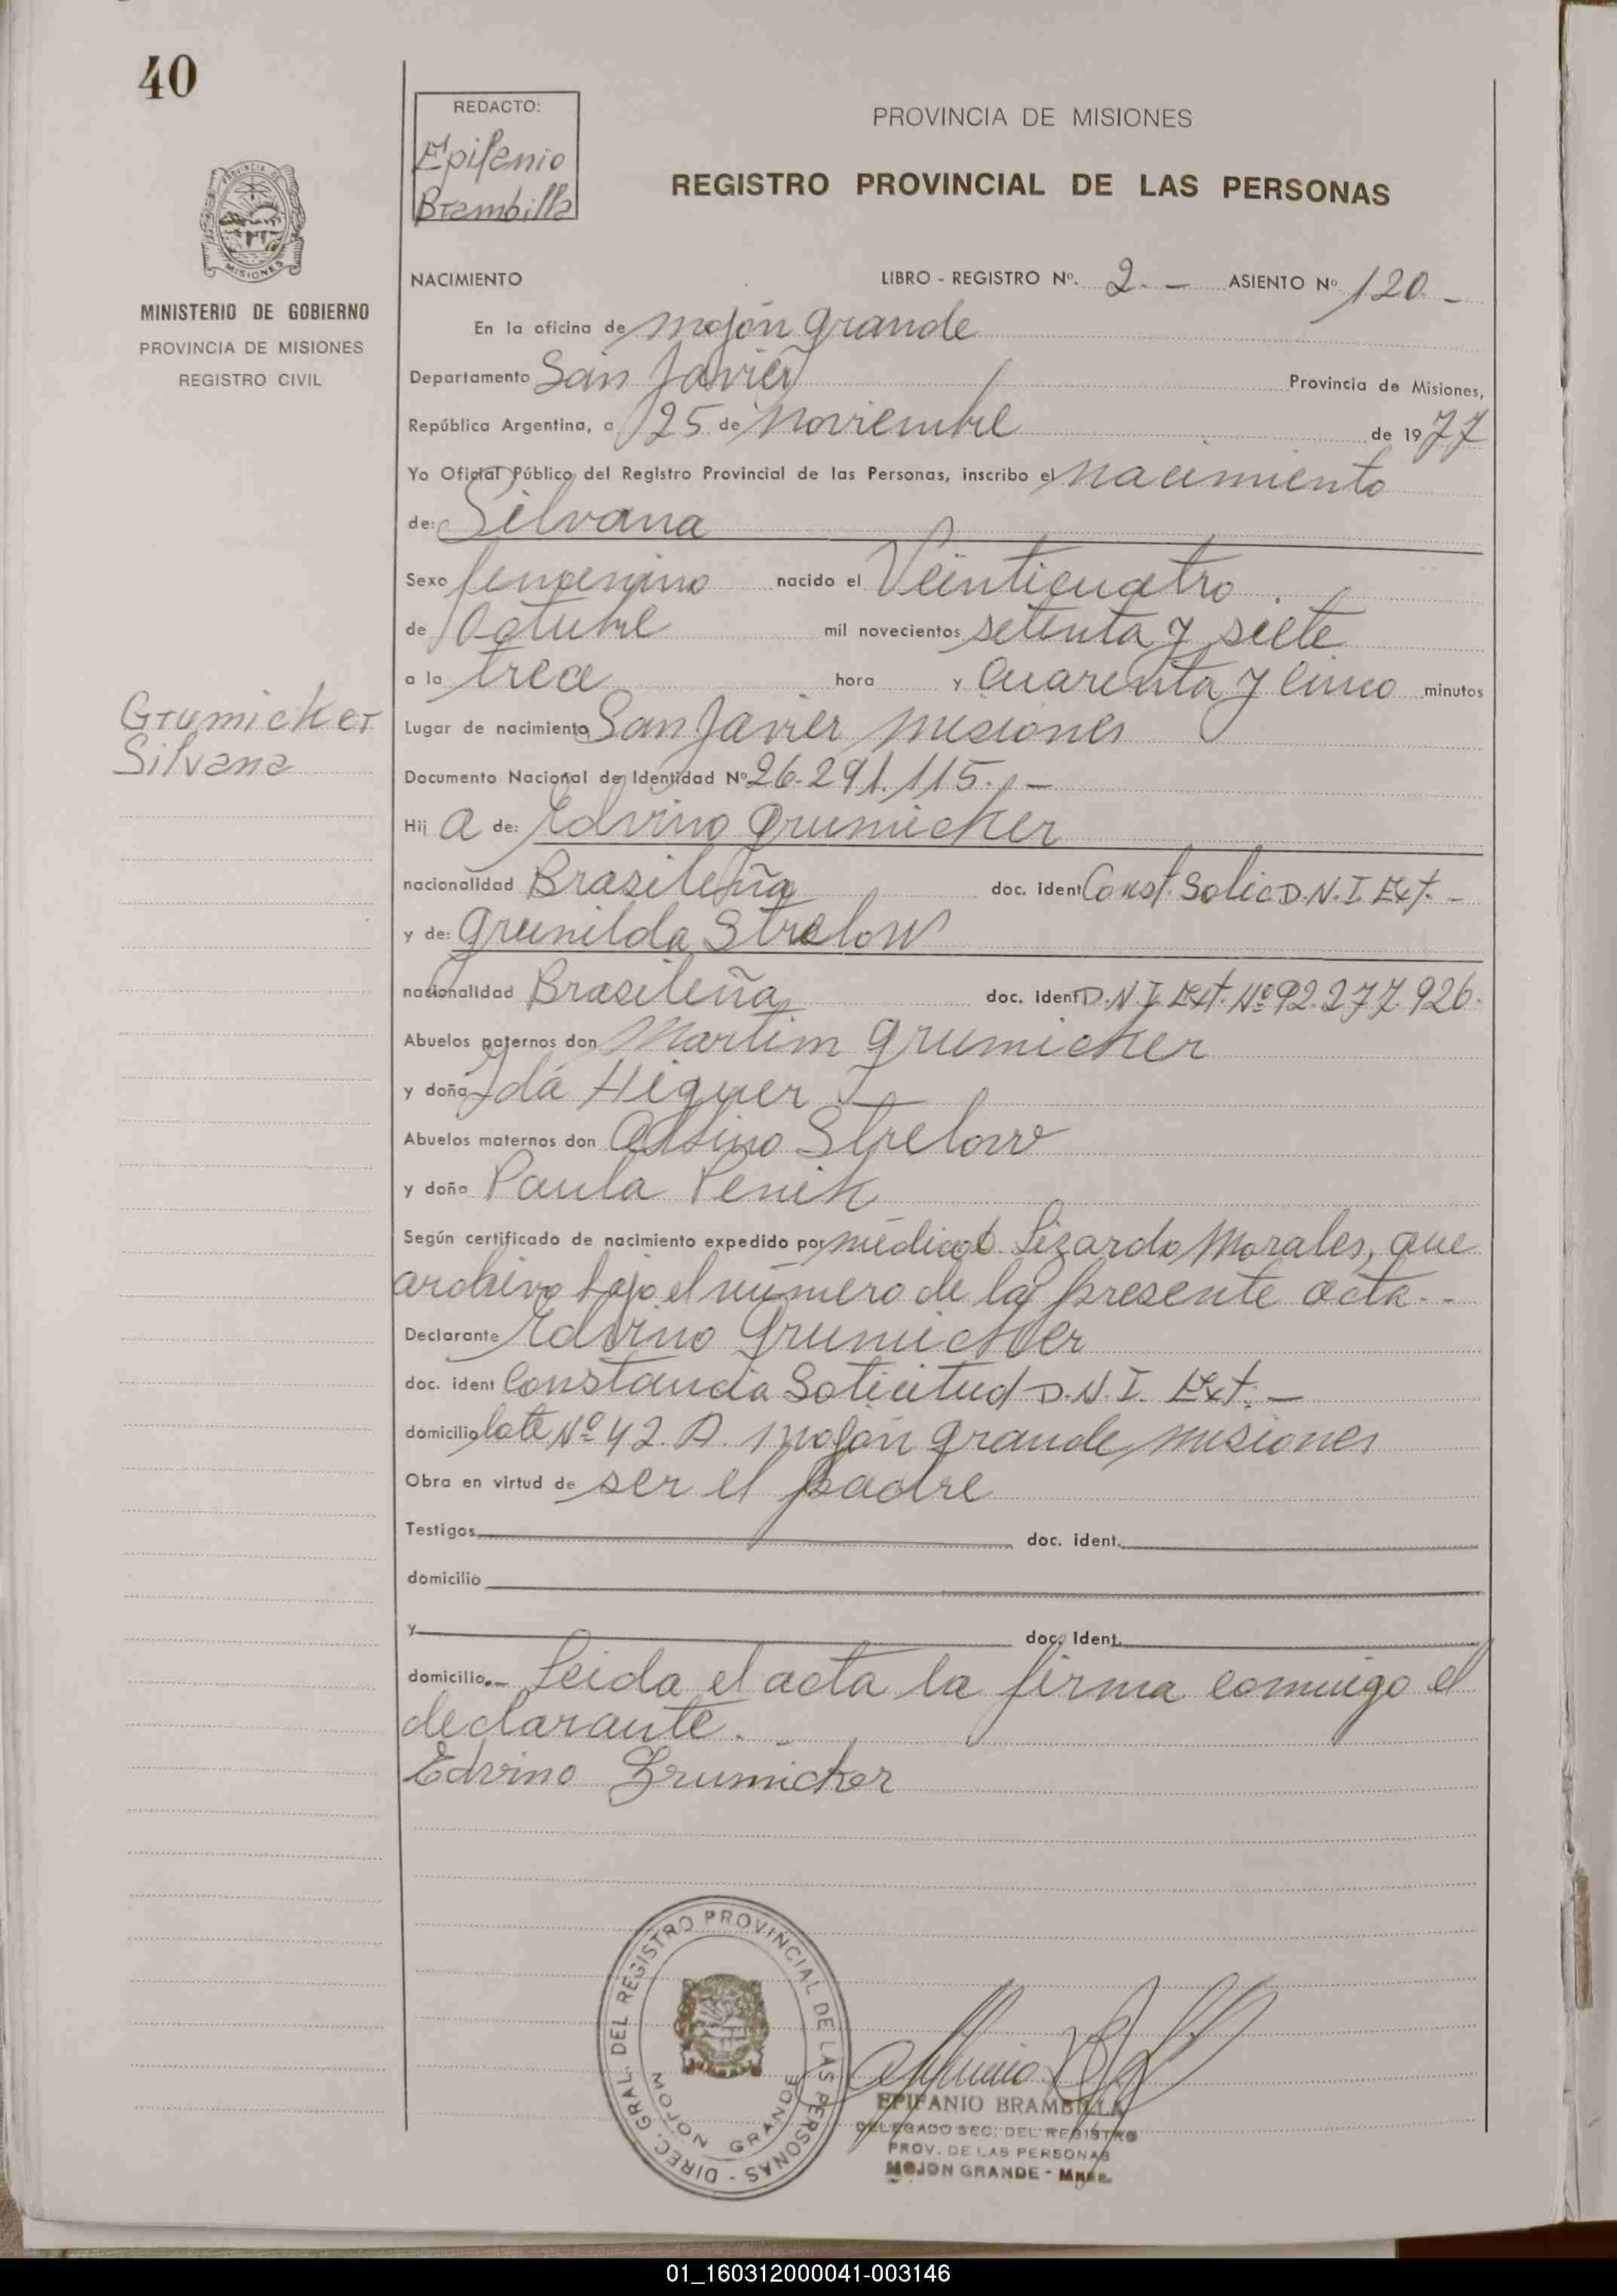 40
REDACTO:
Epifanio
Brambilla
PROVINCIA DE MISIONES
REGISTRO PROVINCIAL DE LAS PERSONAS
PROVINCIA DE
MISIONES
MINISTERIO DE GOBIERNO
PROVINCIA DE MISIONES
REGISTRO CIVIL
NACIMIENTO LIBRO - REGISTRO Nº. 2.- ASIENTO Nº 120.-
En la oficina de mojón grande
Departamento San Javier Provincia de Misiones,
República Argentina, a 25 de noviembre de 1977
Yo Oficial Público del Registro Provincial de las Personas, inscribo el nacimiento
de: Silvana
Sexo femenino nacido el Veinticuatro
de Octubre mil novecientos setenta y siete
a la trece hora y cuarenta y cinco minutos
Grumicker
Silvana
Lugar de nacimiento San Javier misiones
Documento Nacional de Identidad Nº 26.291.115.-
Hij a de: Edvino Grumicker
nacionalidad Brasileña doc. ident Const. Solic D.N.I. Ext.-
y de: Grunilda Strelow
nacionalidad Brasileña doc. ident D.N.I. Ext. Nº 92.277.926.
Abuelos paternos don Martim Grumicker
y doña Idá Higuer
Abuelos maternos don Strelow
y doña Paula Penik
Según certificado de nacimiento expedido por médico Lizardo Morales, que
archivo bajo el número de la presente acta.-
Declarante Edvino Grumicker
doc. ident Constancia Solicitud D.N.I. Ext.-
domicilio lote Nº 42. A. mojón grande misiones
Obra en virtud de ser el padre
Testigos doc. ident.
domicilio
y doc. ident.
domicilio.- Leida el acta la firma conmigo el
declarante.
Edvino Grumicker
DIREC. GRAL. DEL REGISTRO PROVINCIAL DE LAS PERSONAS -
MOJON GRANDE
EPIFANIO BRAMBILLA
DELEGADO SEC. DEL REGISTRO
PROV. DE LAS PERSONAS
MOJON GRANDE - Mnes.
01_160312000041-003146